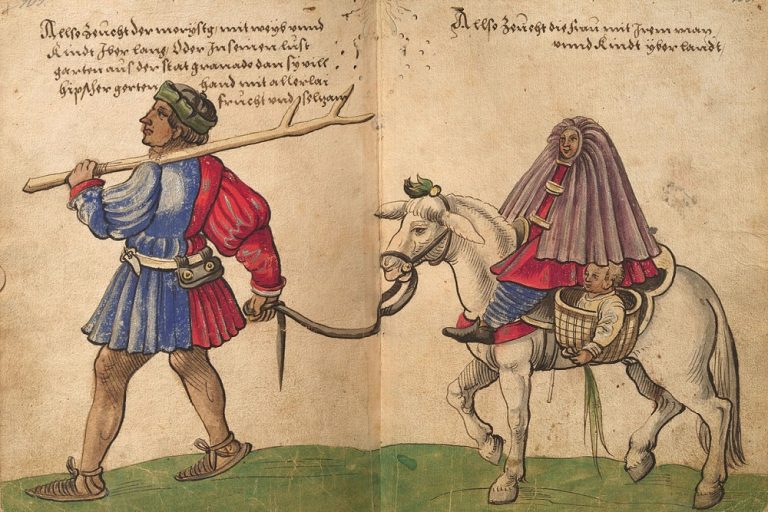 Allso Zeucht der morysk mit weyb vnnd
Kindt Jber lang Oder Jn seinen lust
garten aus der stat granade dan sy vill
hipscher gerten hand mit allerlai
frucht vnd selzam
Allso Zeucht die frau mit Jrem man
vnnd Kindt yber landt